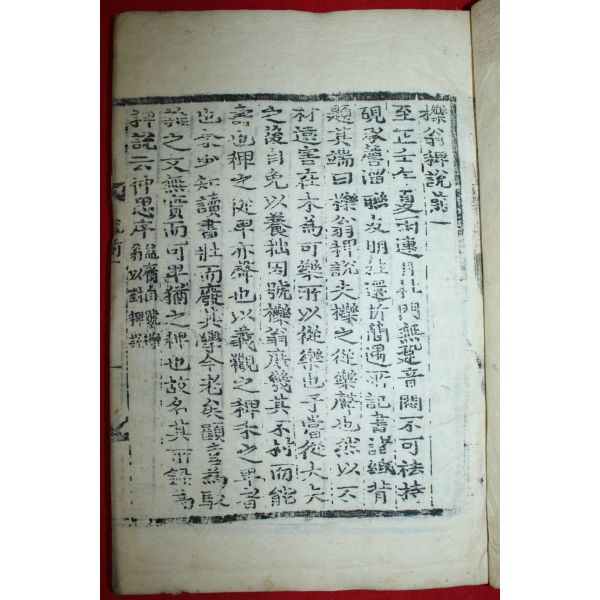 櫟翁稗說前一
至正壬午夏雨連月杜門無跫音悶不可袪持
硯承簷溜聯友朋往還折簡遇所記書諸紙背
題其端曰櫟翁稗說夫櫟之從樂聲也然以不
材遠害在木為可樂所以從樂也予嘗從大夫
之後自免以養拙因號櫟翁庶幾其不材而能
壽也稗之從卑亦聲也以義觀之稗禾之卑者
也余少知讀書壯而廢其學今老矣顧喜為駁
雜之文無實而可卑猶之稗也故名其所錄為
稗說云仲思序
益齋自號櫟
翁以對稗
說前一